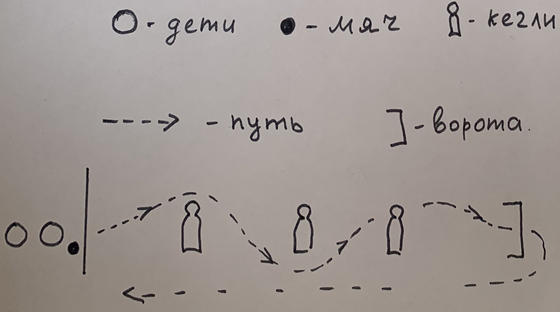 - дети - мяч - кегли
- путь - ворота.